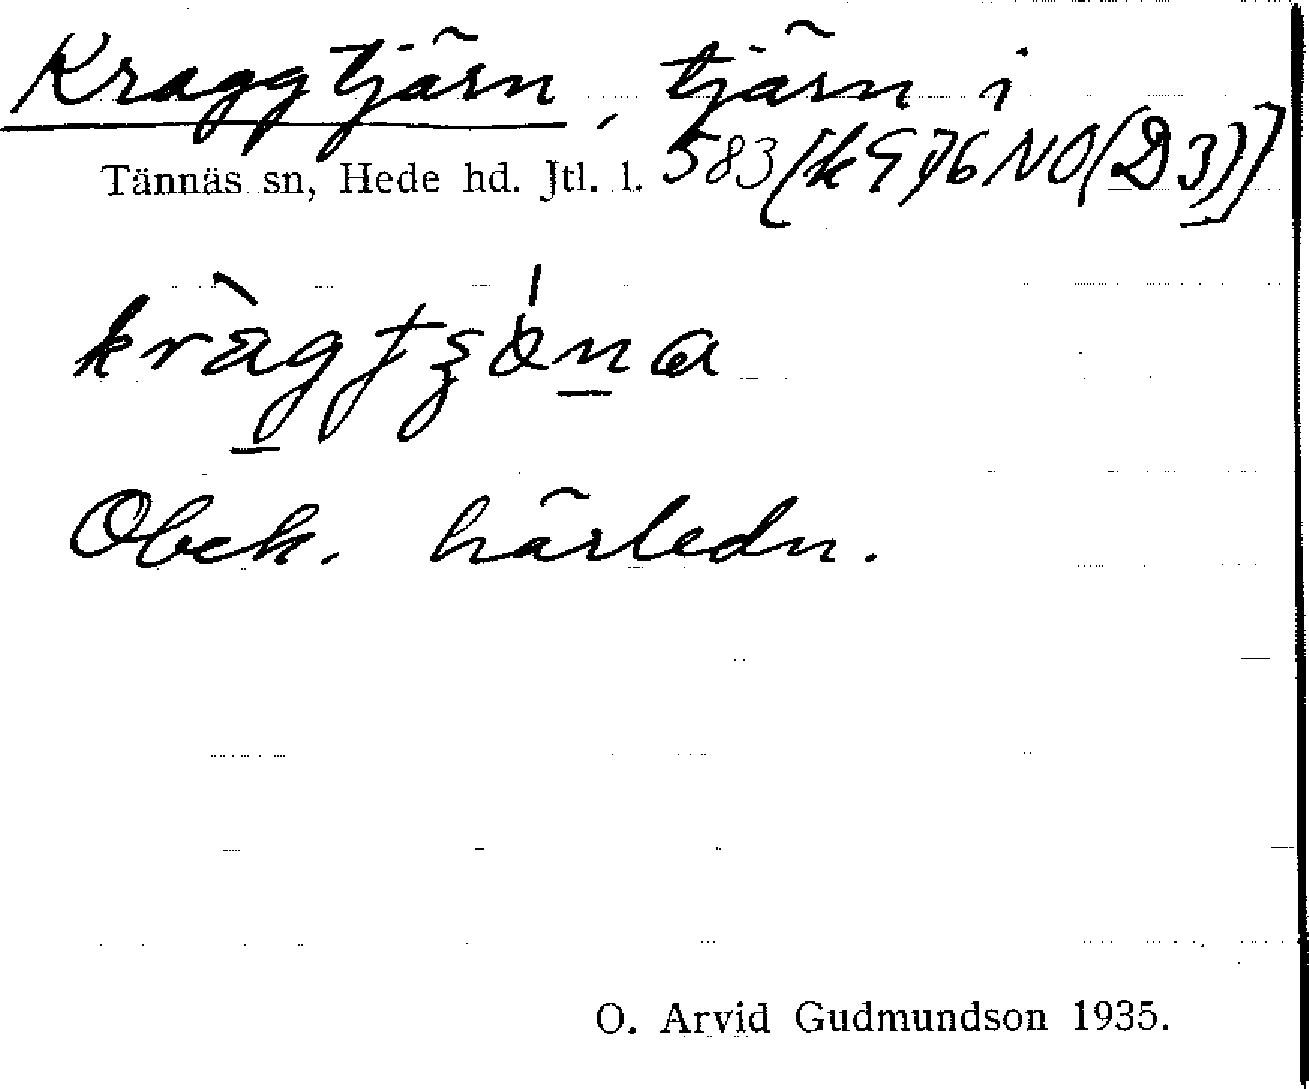 Kraggtjärn, tjärn i
Tännäs sn, Hede hd. Jtl. l. 583 [k976NO(D3)]
Obek. härledn.
O. Arvid Gudmundson 1935.